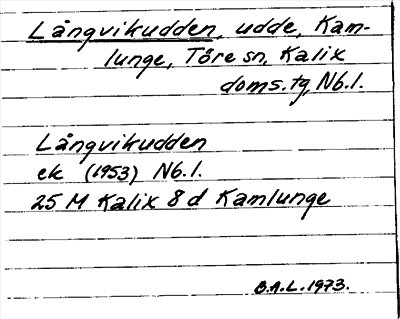 Långvikudden, udde, Kam-
lunge, Töre sn, Kalix
doms.tg, Nb.l.
Långvikudden
ek (1953) Nb.l.
25 M Kalix 8 d Kamlunge
B.A.L. 1973.